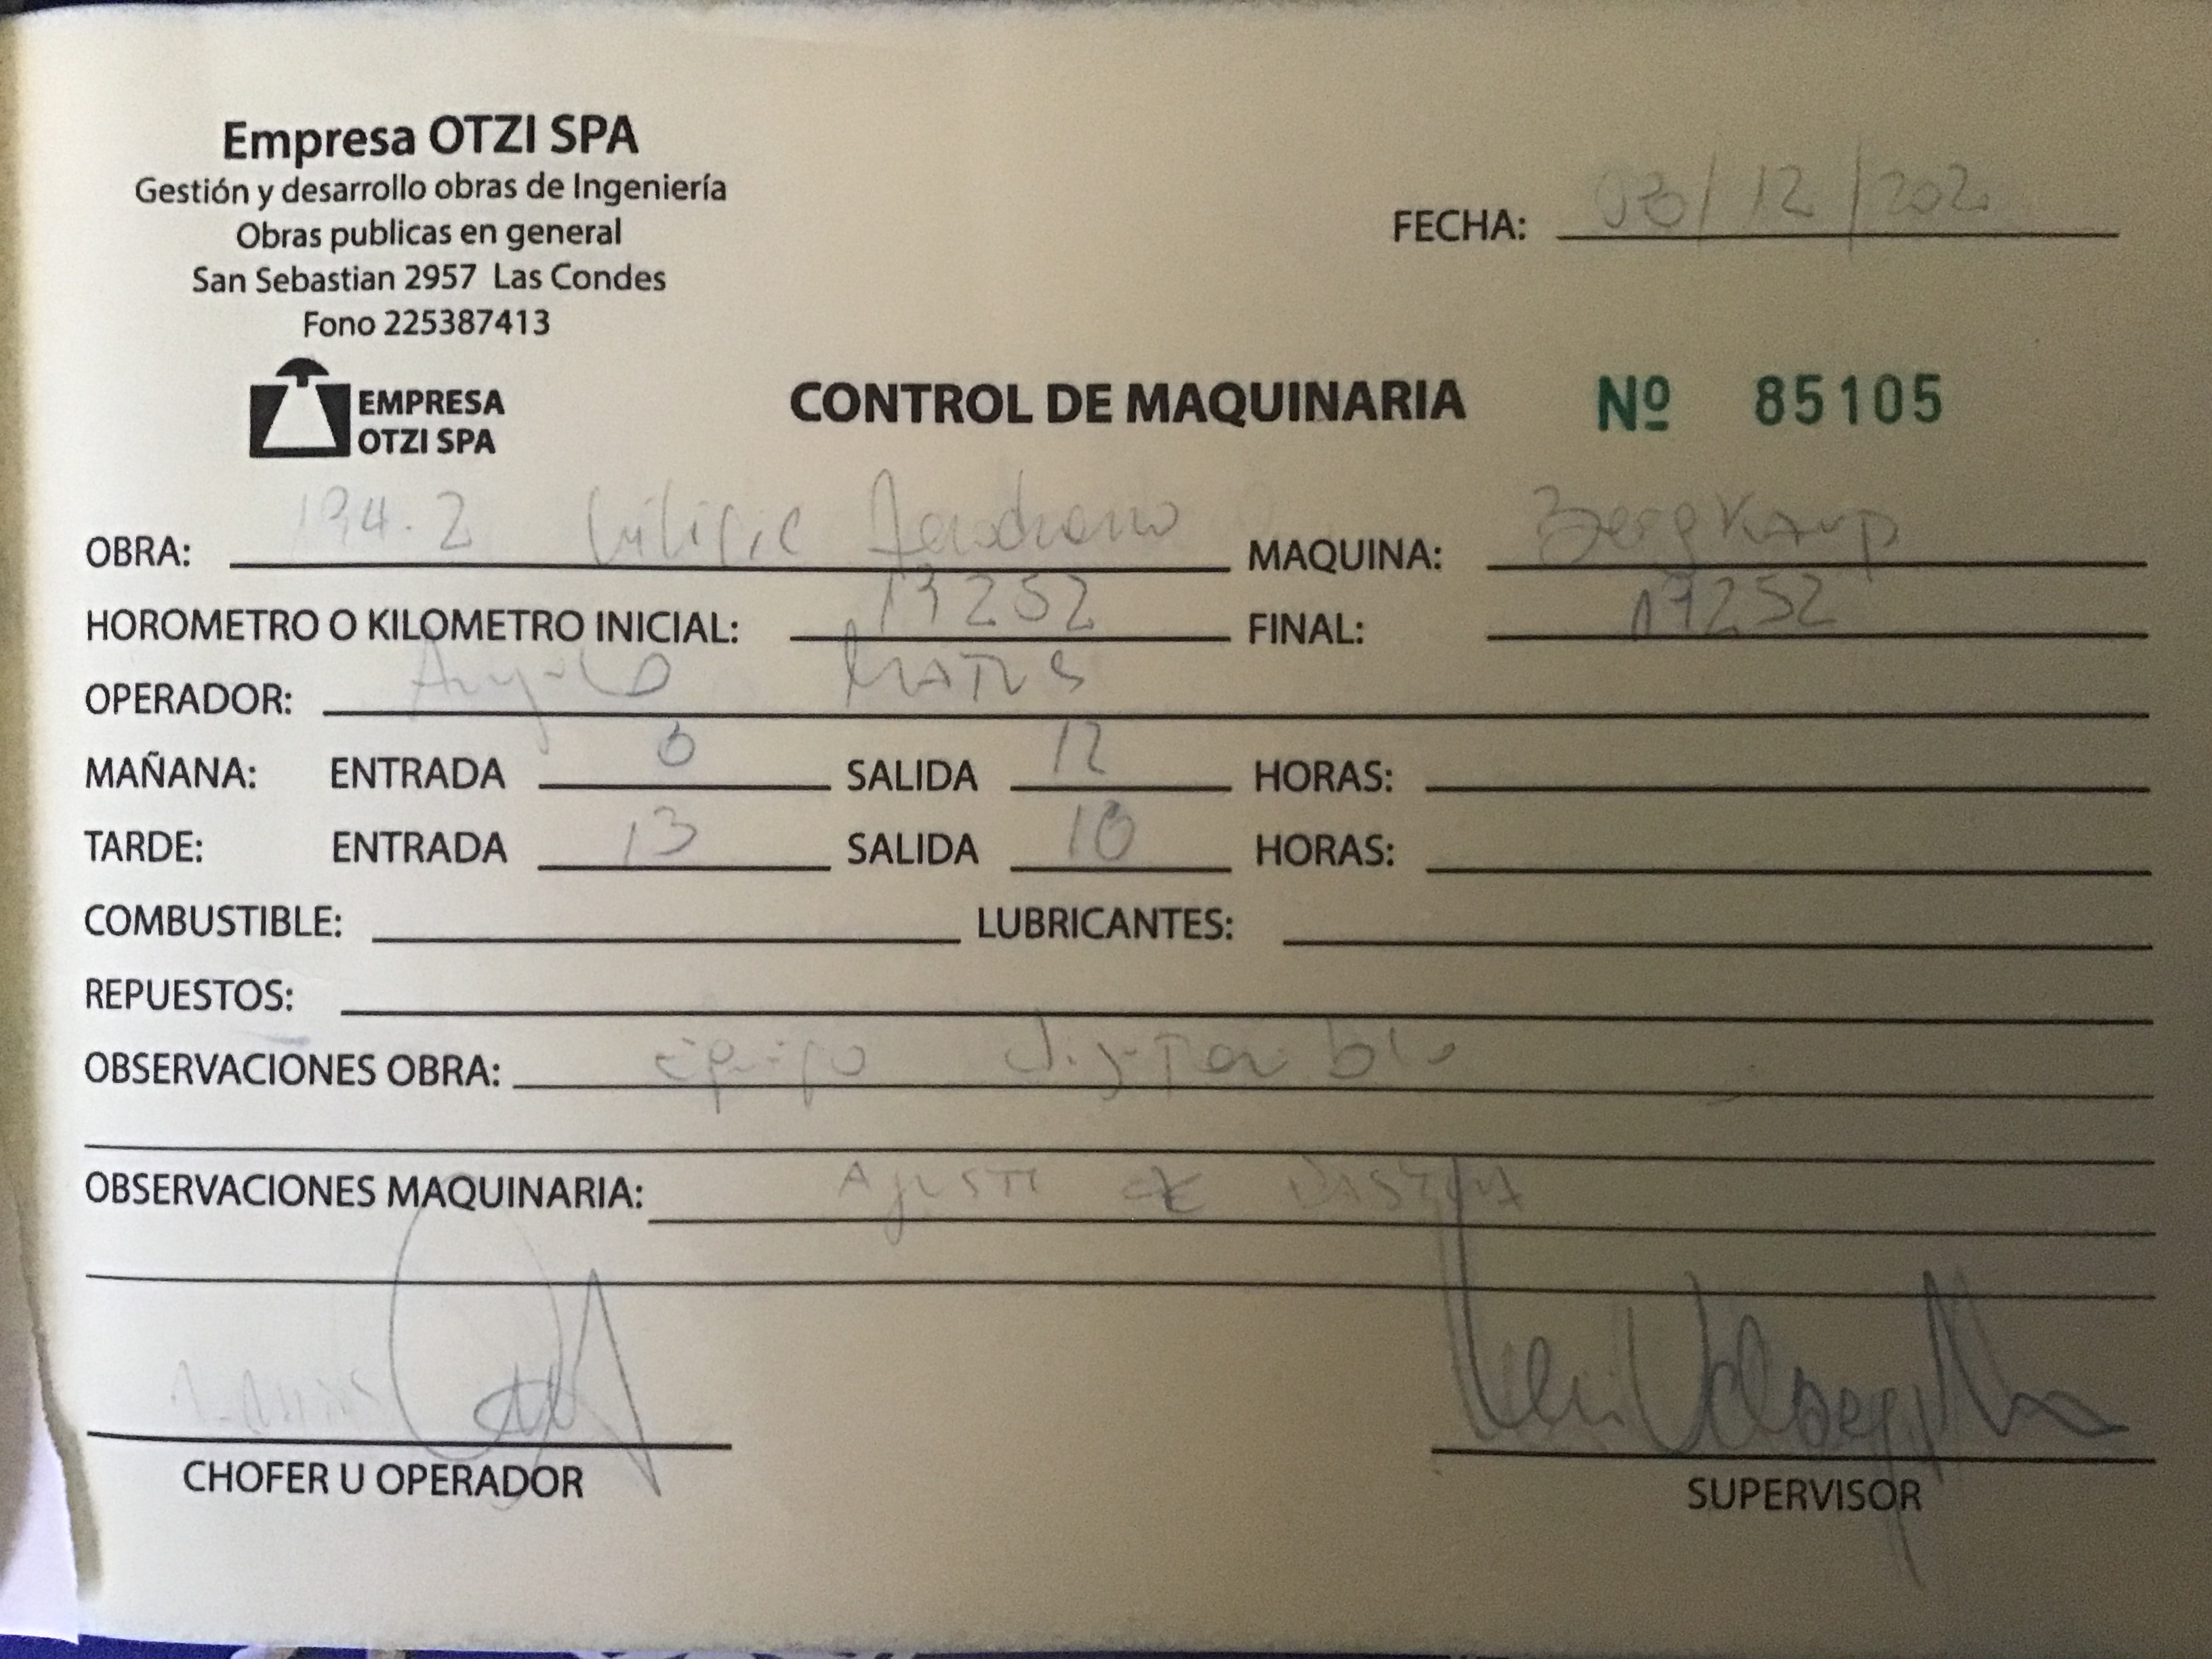 Empresa OTZI SPA
Gestión y desarrollo obras de Ingeniería
Obras publicas en general
San Sebastian 2957 Las Condes
Fono 225387413
FECHA: 12/202
EMPRESA
OTZI SPA
CONTROL DE MAQUINARIA Nº 85105
OBRA: 194.2 MAQUINA:
HOROMETRO O KILOMETRO INICIAL: 17252 FINAL: 17252
OPERADOR:
MAÑANA: ENTRADA 8 SALIDA 12 HORAS:
TARDE: ENTRADA 13 SALIDA 18 HORAS:
COMBUSTIBLE: LUBRICANTES:
REPUESTOS:
OBSERVACIONES OBRA: equipo disponible
OBSERVACIONES MAQUINARIA: Ajuste de
CHOFER U OPERADOR SUPERVISOR